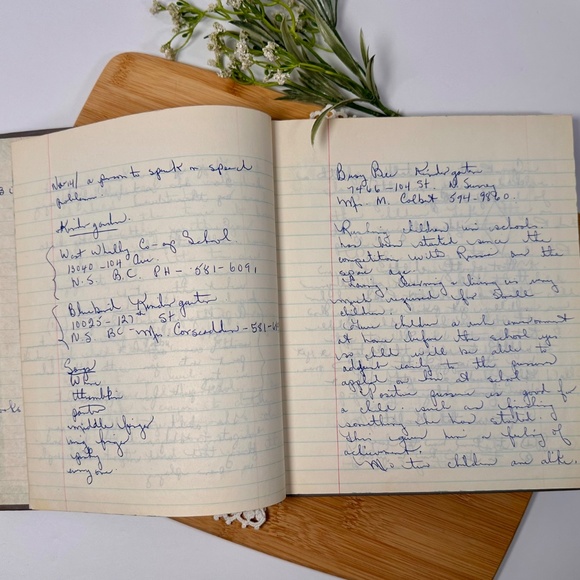 Nov 14/ a person to speak on speech
problem.
Kindergarten
West Whalley Co-op School
13040-104 Ave.
N.S. B.C. PH- 581-6091
Bluebird Kindergarten
10023-127th St
N.S. BC - Mrs. -581-
Songs
Where
thumbkin
pointer
middle finger
ring finger
pinky
everyone
Busy Bee Kindergarten
7466-104 St. N. Surrey
Mrs. M. Colbert 594-9860.
children in schools
has been stated since the
competition with Russia on the
space age.
Loving, & living is very
much required for small
children.
children a environment
at home before the school yrs
so child will be able to
adjust easily to the
at school
Positive is good for
a child such as finding
something he has
This gives him a feeling of
achievement.
No two children are alike.